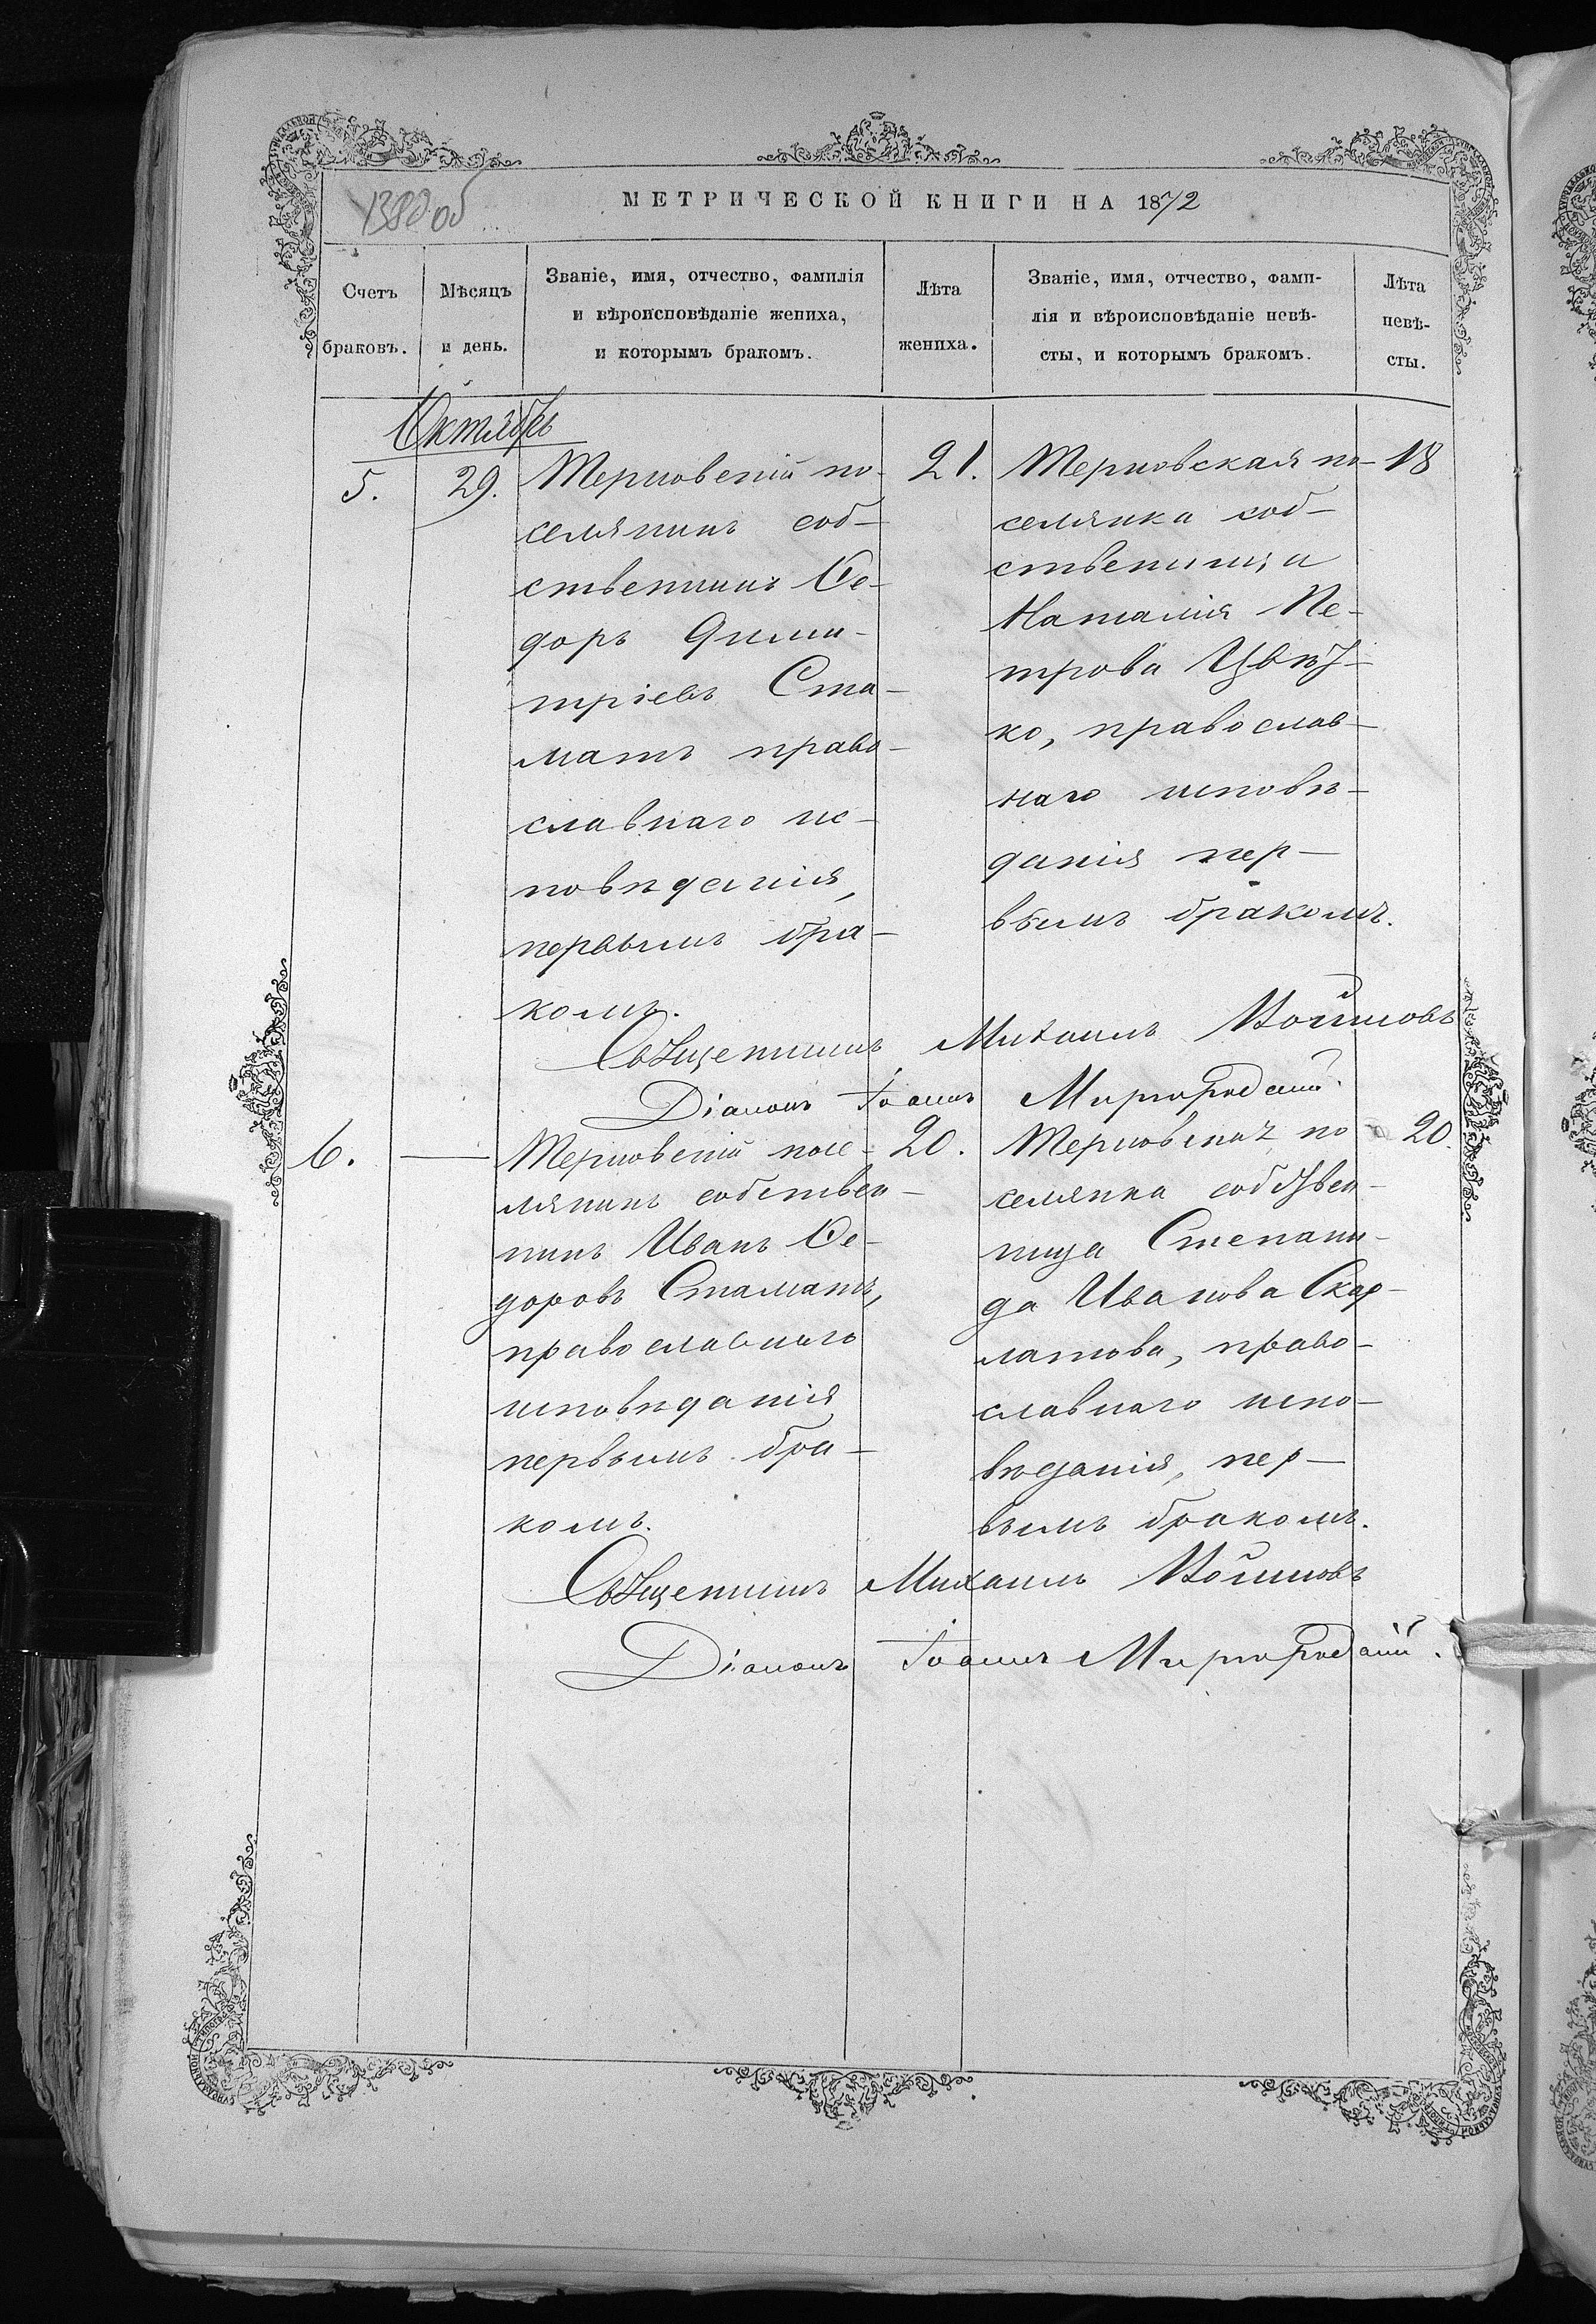 138об
МЕТРИЧЕСКОЙ КНИГИ НА 1872
Счетъ браковъ.
Мѣсяцъ и день.
Званіе, имя, отчество, фамилія
и вѣроисповѣданіе жениха,
и которымъ бракомъ.
Лѣта жениха.
Званіе, имя, отчество, фами-
лія и вѣроисповѣданіе невѣ-
сты, и которымъ бракомъ.
Лѣта невѣ-
сты.
Октябрь
5. 29.
Терновскій по-
селянинъ соб-
ственникъ Ѳе-
доръ Дими-
тріевъ Ста-
матъ право-
славнаго ис-
повѣданія,
первымъ бра-
комъ.
21.
Терновская по-
селянка соб-
ственница
Наталія Пе-
трова Цвѣт-
ко, православ-
наго исповѣ-
данія пер-
вымъ бракомъ.
18
Священникъ Михаилъ Войновъ
Діаконъ Іоаннъ Миргородскій.
6. —
Терновскій посе-
лянинъ собствен-
никъ Иванъ Ѳе-
доровъ Стаматъ,
православнаго
исповѣданія
первымъ бра-
комъ.
20.
Терновская по-
селянка собствен-
ница Степани-
да Иванова Скар-
латова, право-
славнаго испо-
вѣданія, пер-
вымъ бракомъ.
20.
Священникъ Михаилъ Войновъ
Діаконъ Іоаннъ Миргородскій.